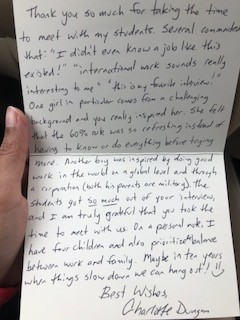 Thank you so much for taking the time
to meet with my students. Several commented
that: "I didn't even know a job like this
existed!" "international work sounds really
interesting to me" "this is my favorite interview!"
One girl in particular comes from a challenging
background and you really inspired her. She felt
that the 60% rule was so refreshing instead of
having to know or do everything before trying
more. Another boy was inspired by doing good
work in the world on a global level and through
a corporation (both his parents are military). The
students got so much out of your interview,
and I am truly grateful that you took the
time to meet with us. On a personal note, I
have four children and also prioritize balance
between work and family. Maybe in ten years
when things slow down we can hang out!
Best Wishes,
Charlotte